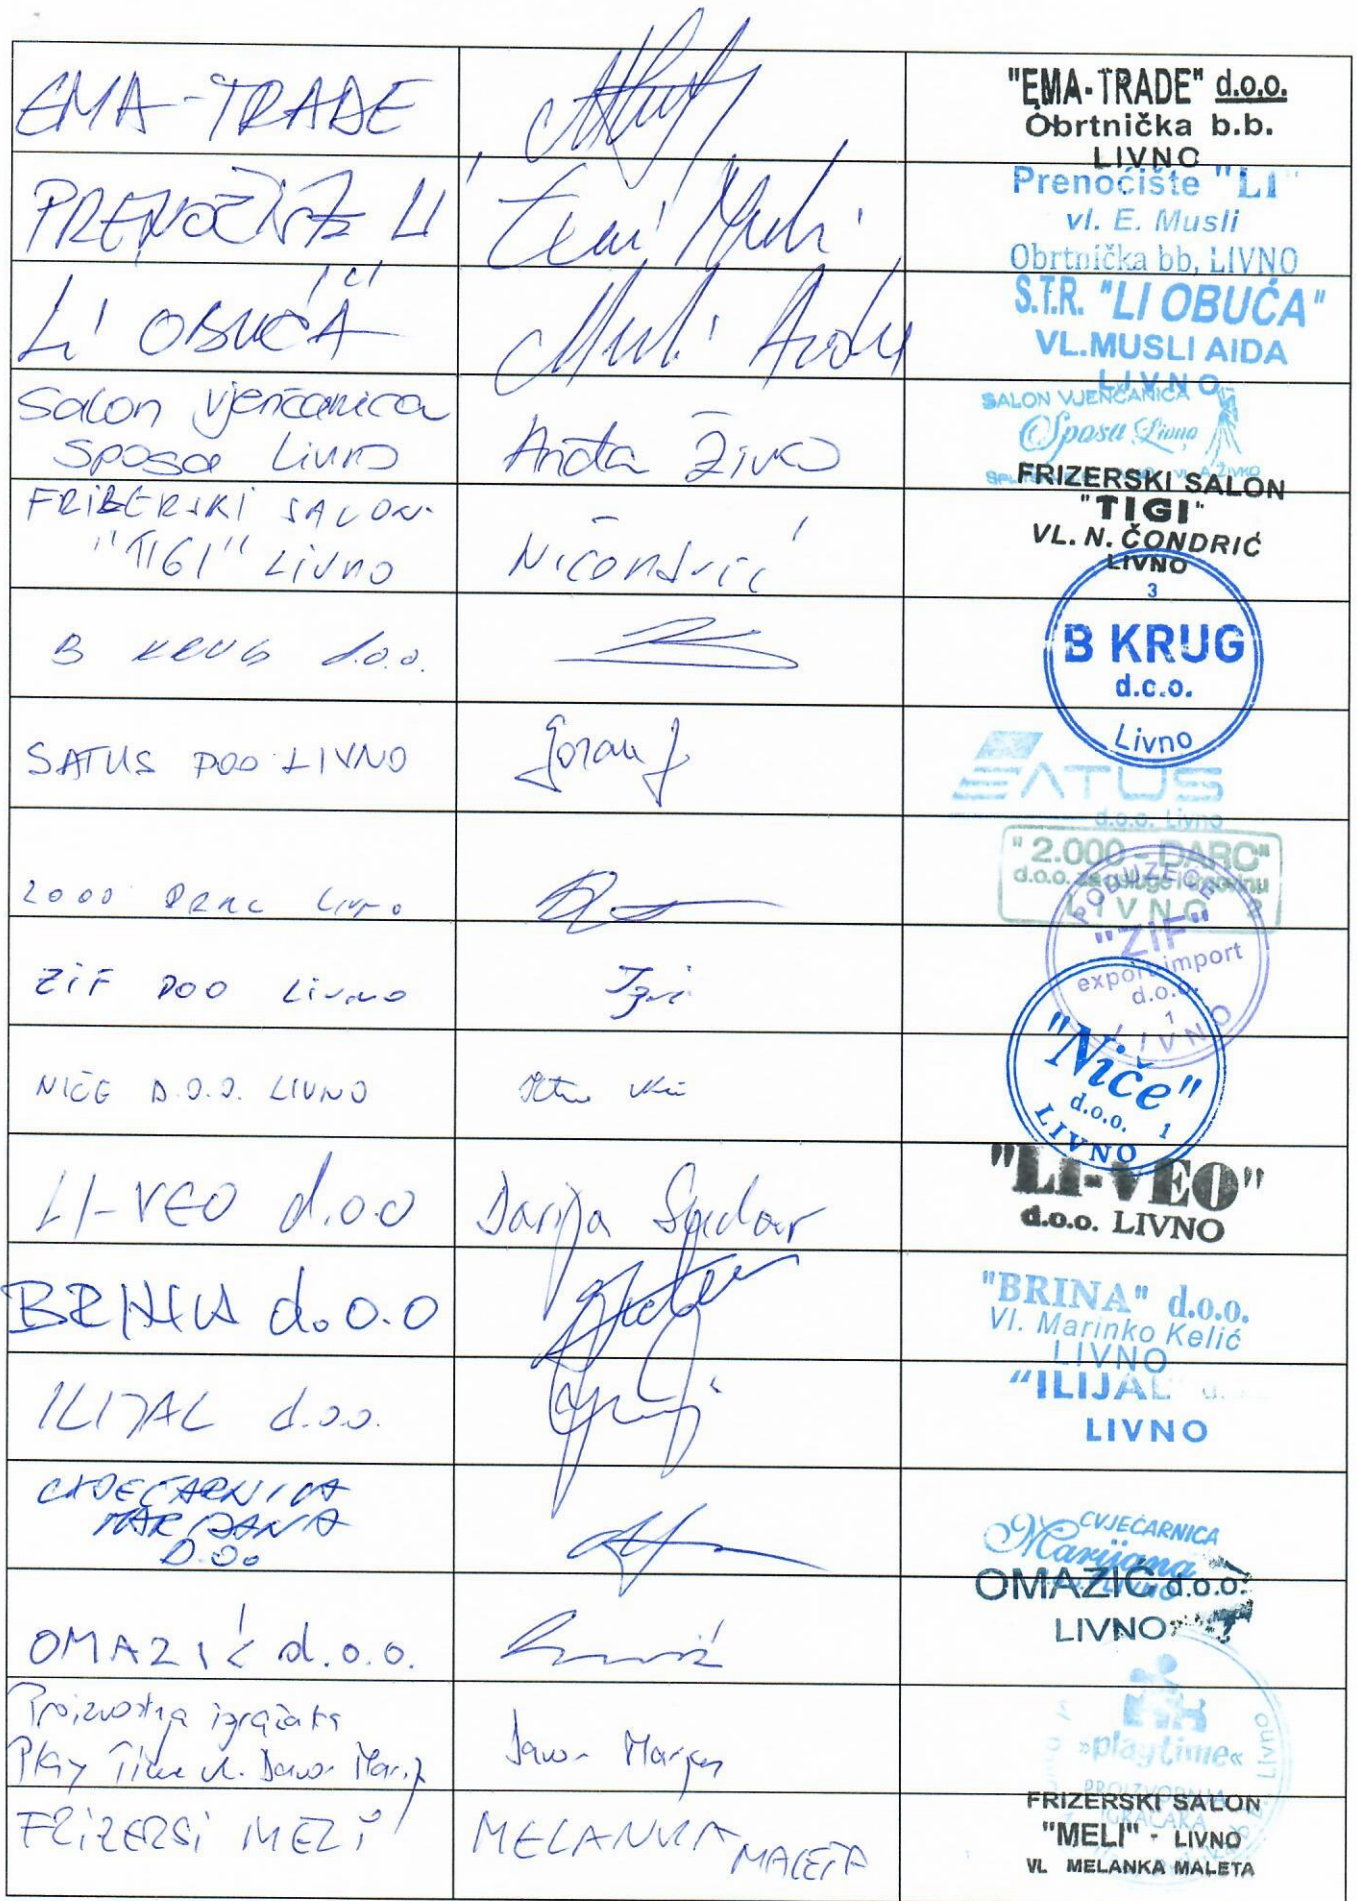 EMA-TRADE
"EMA-TRADE" d.o.o.
Obrtnička b.b.
LIVNO
PRENOĆIŠTE LI
Prenoćište "LI"
vl. E. Musli
Obrtnička bb, LIVNO
LI OBUĆA
Musli Aida
S.T.R. "LI OBUĆA"
VL.MUSLI AIDA
LIVNO
Salon vjenčanica
Sposa Livno
Anđa Živko
SALON VJENČANICA
Sposa Livno
A.ŽIVKO
FRIZERSKI SALON
"TIGI" Livno
N.Čondrić
FRIZERSKI SALON
"TIGI"
VL. N. ČONDRIĆ
LIVNO
B KRUG d.o.o.
3
B KRUG
d.o.o.
Livno
SATUS DOO LIVNO
Goran
SATUS
d.o.o. Livno
2000 DARC Livno
"2.000 - DARC"
d.o.o. za usluge i trgovinu
LIVNO 2
ZIF DOO Livno
PODUZEĆE
"ZIF"
export-import
d.o.o.
1
LIVNO
NIČE D.O.O. LIVNO
"Niče"
d.o.o. 1
LIVNO
LI-VEO d.o.o
Darija
"LI-VEO"
d.o.o. LIVNO
BRINA d.o.o
"BRINA" d.o.o.
Vl. Marinko Kelić
LIVNO
ILIJAL d.o.o.
"ILIJAL" d.o.o.
LIVNO
CVJEĆARNICA
MARIJANA
D.OO
CVJEĆARNICA
Marijana
LIVNO
OMAZIĆ d.o.o.
OMAZIĆ d.o.o.
LIVNO
Proizvodnja igračaka
Play Time vl. Davor
Davor
»playtime«
PROIZVODNJA
IGRAČAKA
Livno
FRIZERSI MELI
MELANKA MALETA
FRIZERSKI SALON
"MELI" - LIVNO
VL MELANKA MALETA